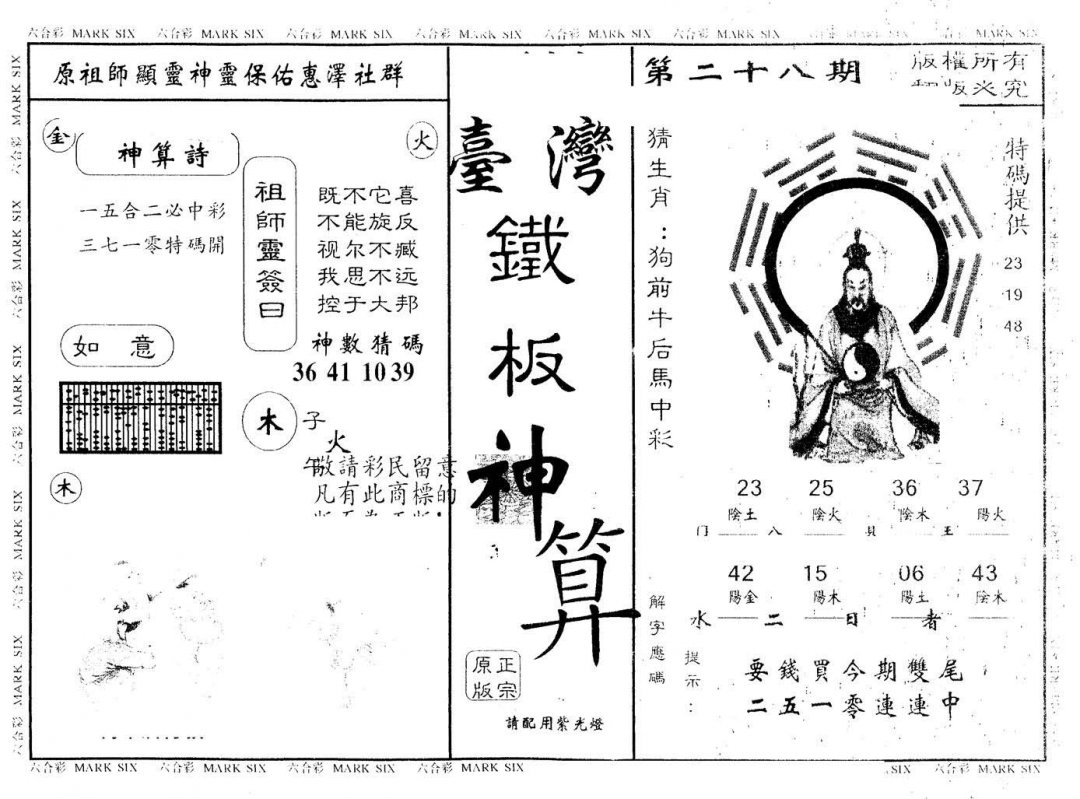 六合彩 MARK SIX 六合彩 MARK SIX 六合彩 MARK SIX 六合彩 MARK SIX 六合彩 MARK SIX 六合彩 MARK SIX MARK SIX
原祖師顯靈神靈保佑惠澤社群
金
火
神算詩
一五合二必中彩
三七一零特碼開
祖師靈簽曰
既不它喜
不能旋反
视尔不臧
我思不远
控于大邦
神數猜碼
36 41 10 39
如意
木
子
火
午
木
敬請彩民留意
凡有此商標的
臺灣
鐵
板
神
算
正宗
原版
請配用紫光燈
第二十八期
版權所有
究
猜生肖：狗前牛后馬中彩
特碼提供
23
19
48
23 25 36 37
陰土 陰火 陰木 陽火
八 王
42 15 06 43
陽金 陽木 陽土 陰木
水 二 日 者
解字應碼
提示：
要錢買今期雙尾
二五一零連連中
六合彩 MARK SIX 六合彩 MARK SIX 六合彩 MARK SIX 六合彩 MARK SIX SIX 六合彩 MARK SIX